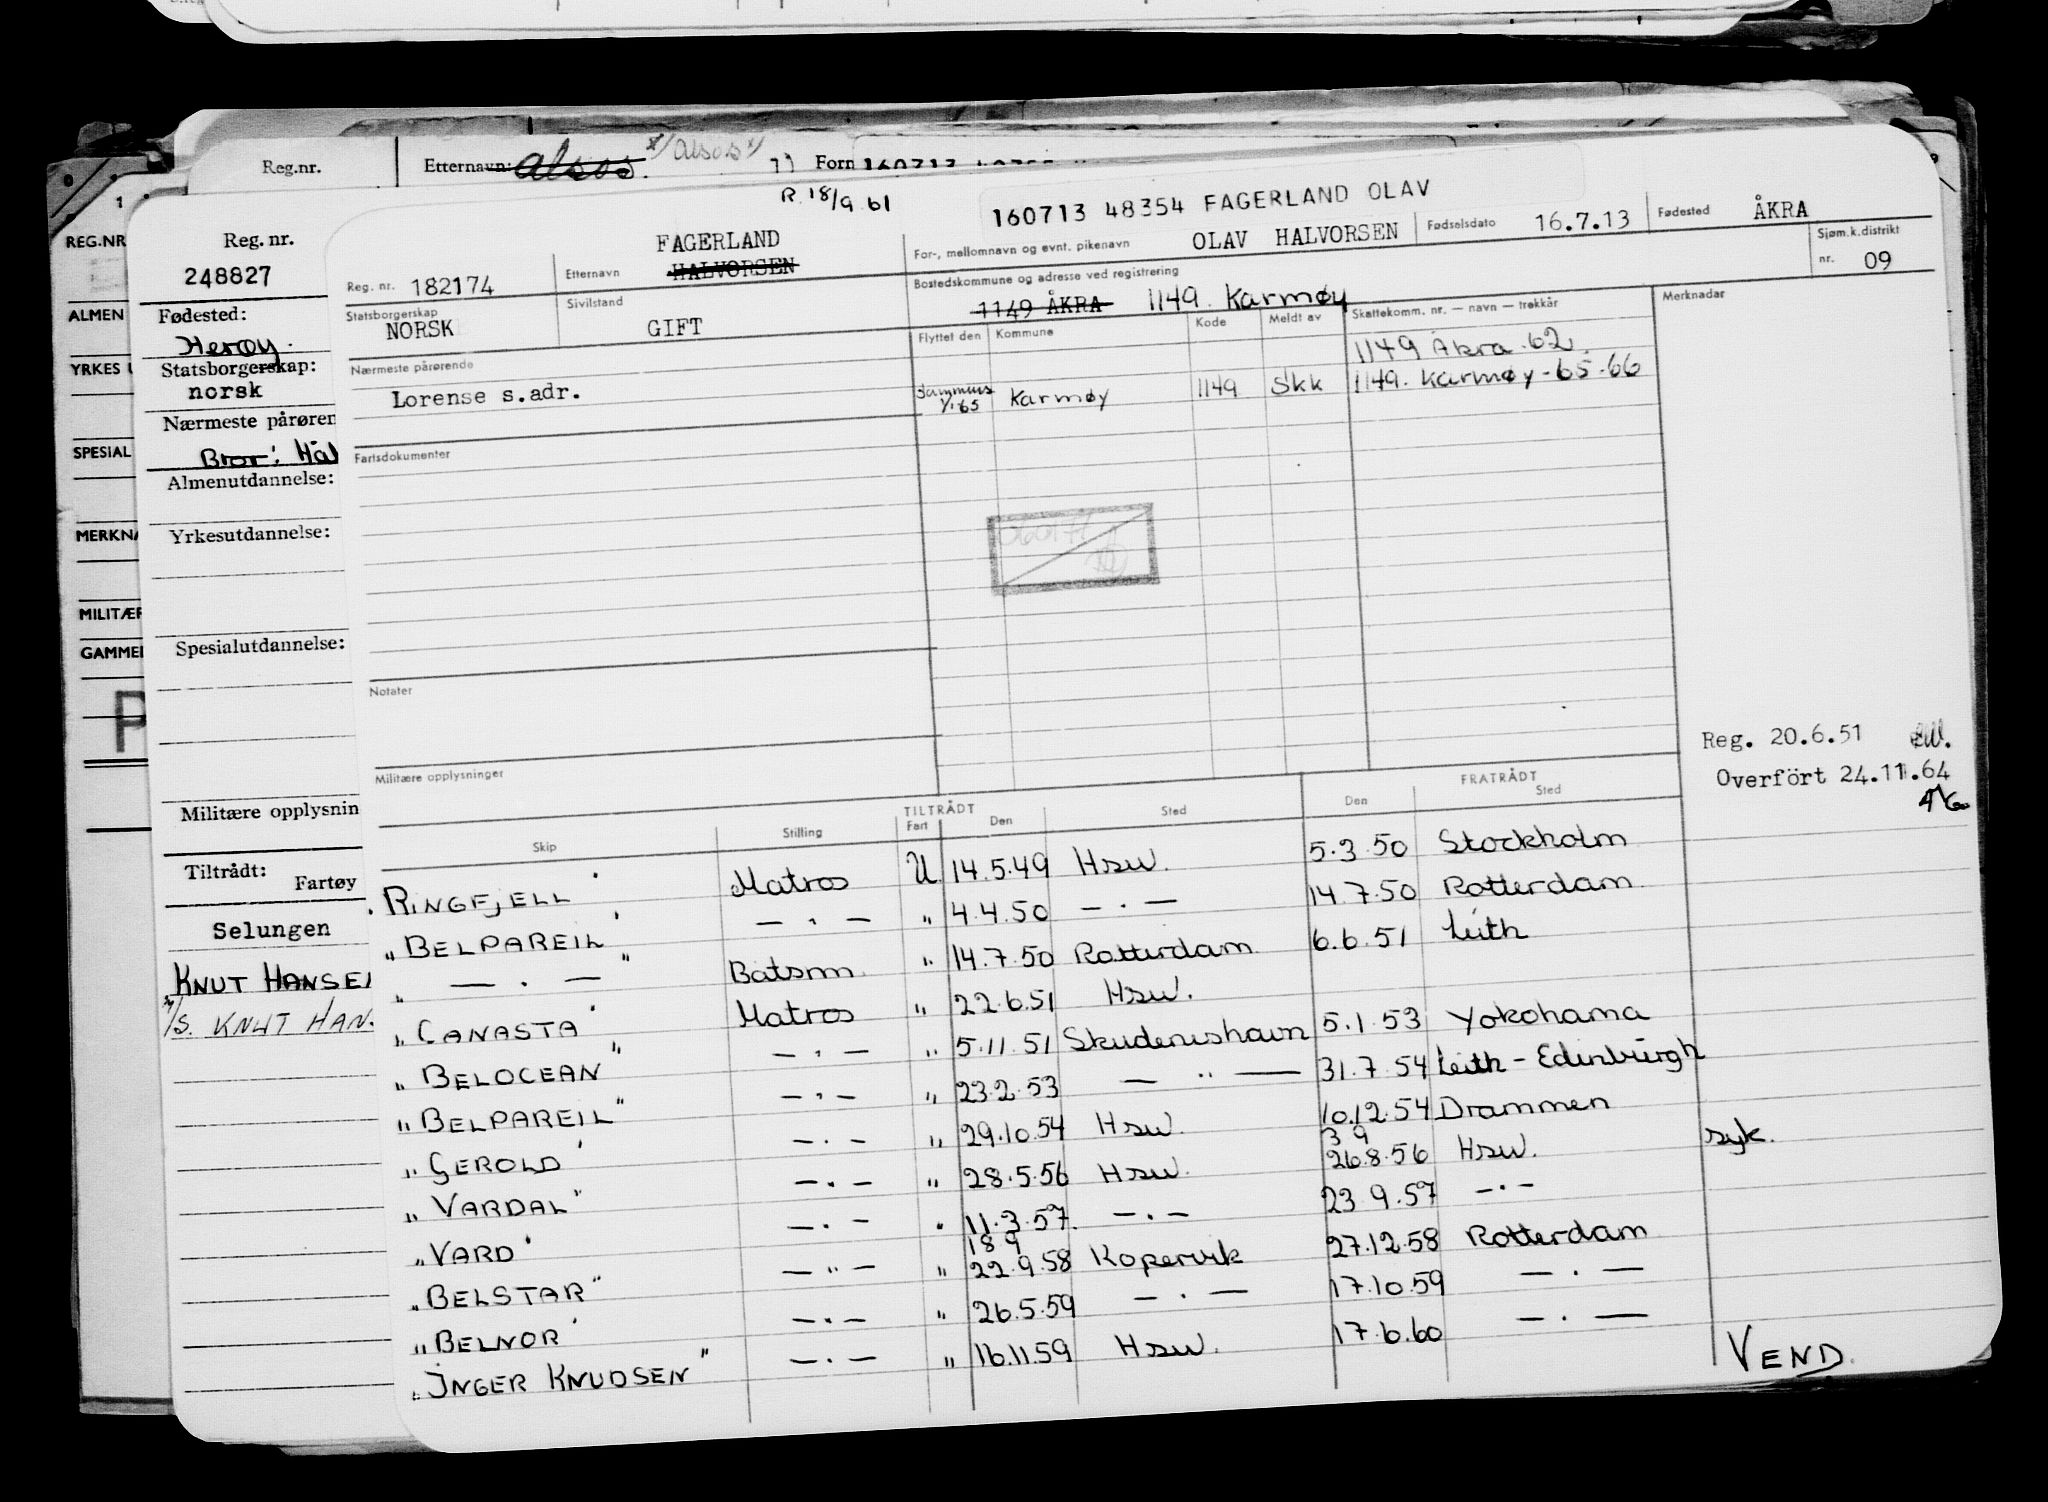 Reg.nr.
Etternavn: Alsos. x/ Alsos x/
Forn
REG.NR
ALMEN
YRKES U
SPESIAL
MERKNA
MILITÆR
GAMMEL
P
Reg. nr.
248827
Fødested:
Herøy.
Statsborgerskap:
norsk
Nærmeste pårøren
Bror: Hal
Almenutdannelse:
Yrkesutdannelse:
Spesialutdannelse:
Militære opplysnin
Tiltrådt:
Fartøy
Selungen
KNUT HANSE
M/S. KNUT HAN.
R. 18/9 61
160713 48354 FAGERLAND OLAV
Reg. nr. 182174
Etternavn FAGERLAND
HALVORSEN
For-, mellomnavn og evnt. pikenavn OLAV HALVORSEN
Fødselsdato 16.7.13
Fødested ÅKRA
Statsborgerskap NORSK
Sivilstand GIFT
Bostedskommune og adresse ved registrering
1149 ÅKRA 1149. Karmøy
Sjøm.k.distrikt
nr. 09
Nærmeste pårørende
Lorense s.adr.
Flyttet den Kommune Kode Meldt av Skattekomm. nr. — navn — trekkår Merknader
1149 Åkra . 62
Sammens 1/1 65 Karmøy 1149 Skk 1149. Karmøy - 65 - 66
Fartsdokumenter
Notater
Militære opplysninger
Reg. 20.6.51
Overført 24.11.64
TILTRÅDT FRATRÅDT
Skip Stilling Fart Den Sted Den Sted
RINGFJELL" Matros U 14.5.49 Hsw. 5.3.50 Stockholm
"BELPAREIL" — " — " 4.4.50 — . — 14.7.50 Rotterdam
" — . — " Båtsm. " 14.7.50 Rotterdam 6.6.51 Leith
"CANASTA" Matros " 22.6.51 Hsw.
"BELOCEAN" — " — " 5.11.51 Skudeneshavn 5.1.53 Yokohama
"BELPAREIL" — " — " 23.2.53 — " — 31.7.54 Leith - Edinburgh
"GEROLD" — . — " 29.10.54 Hsw. 10.12.54 Drammen
"VARDAL" — . — " 28.5.56 Hsw. 3 9 26.8.56 Hsw. syk.
"VARD" — . — " 11.3.57. — . — 23.9.57 — . —
"BELSTAR" — " — " 18 9 22.9.58 Kopervik 27.12.58 Rotterdam
"BELNOR" — . — " 26.5.59 — . — 17.10.59 — . —
"INGER KNUDSEN" — . — " 16.11.59 Hsw. 17.6.60 — . —
VEND.